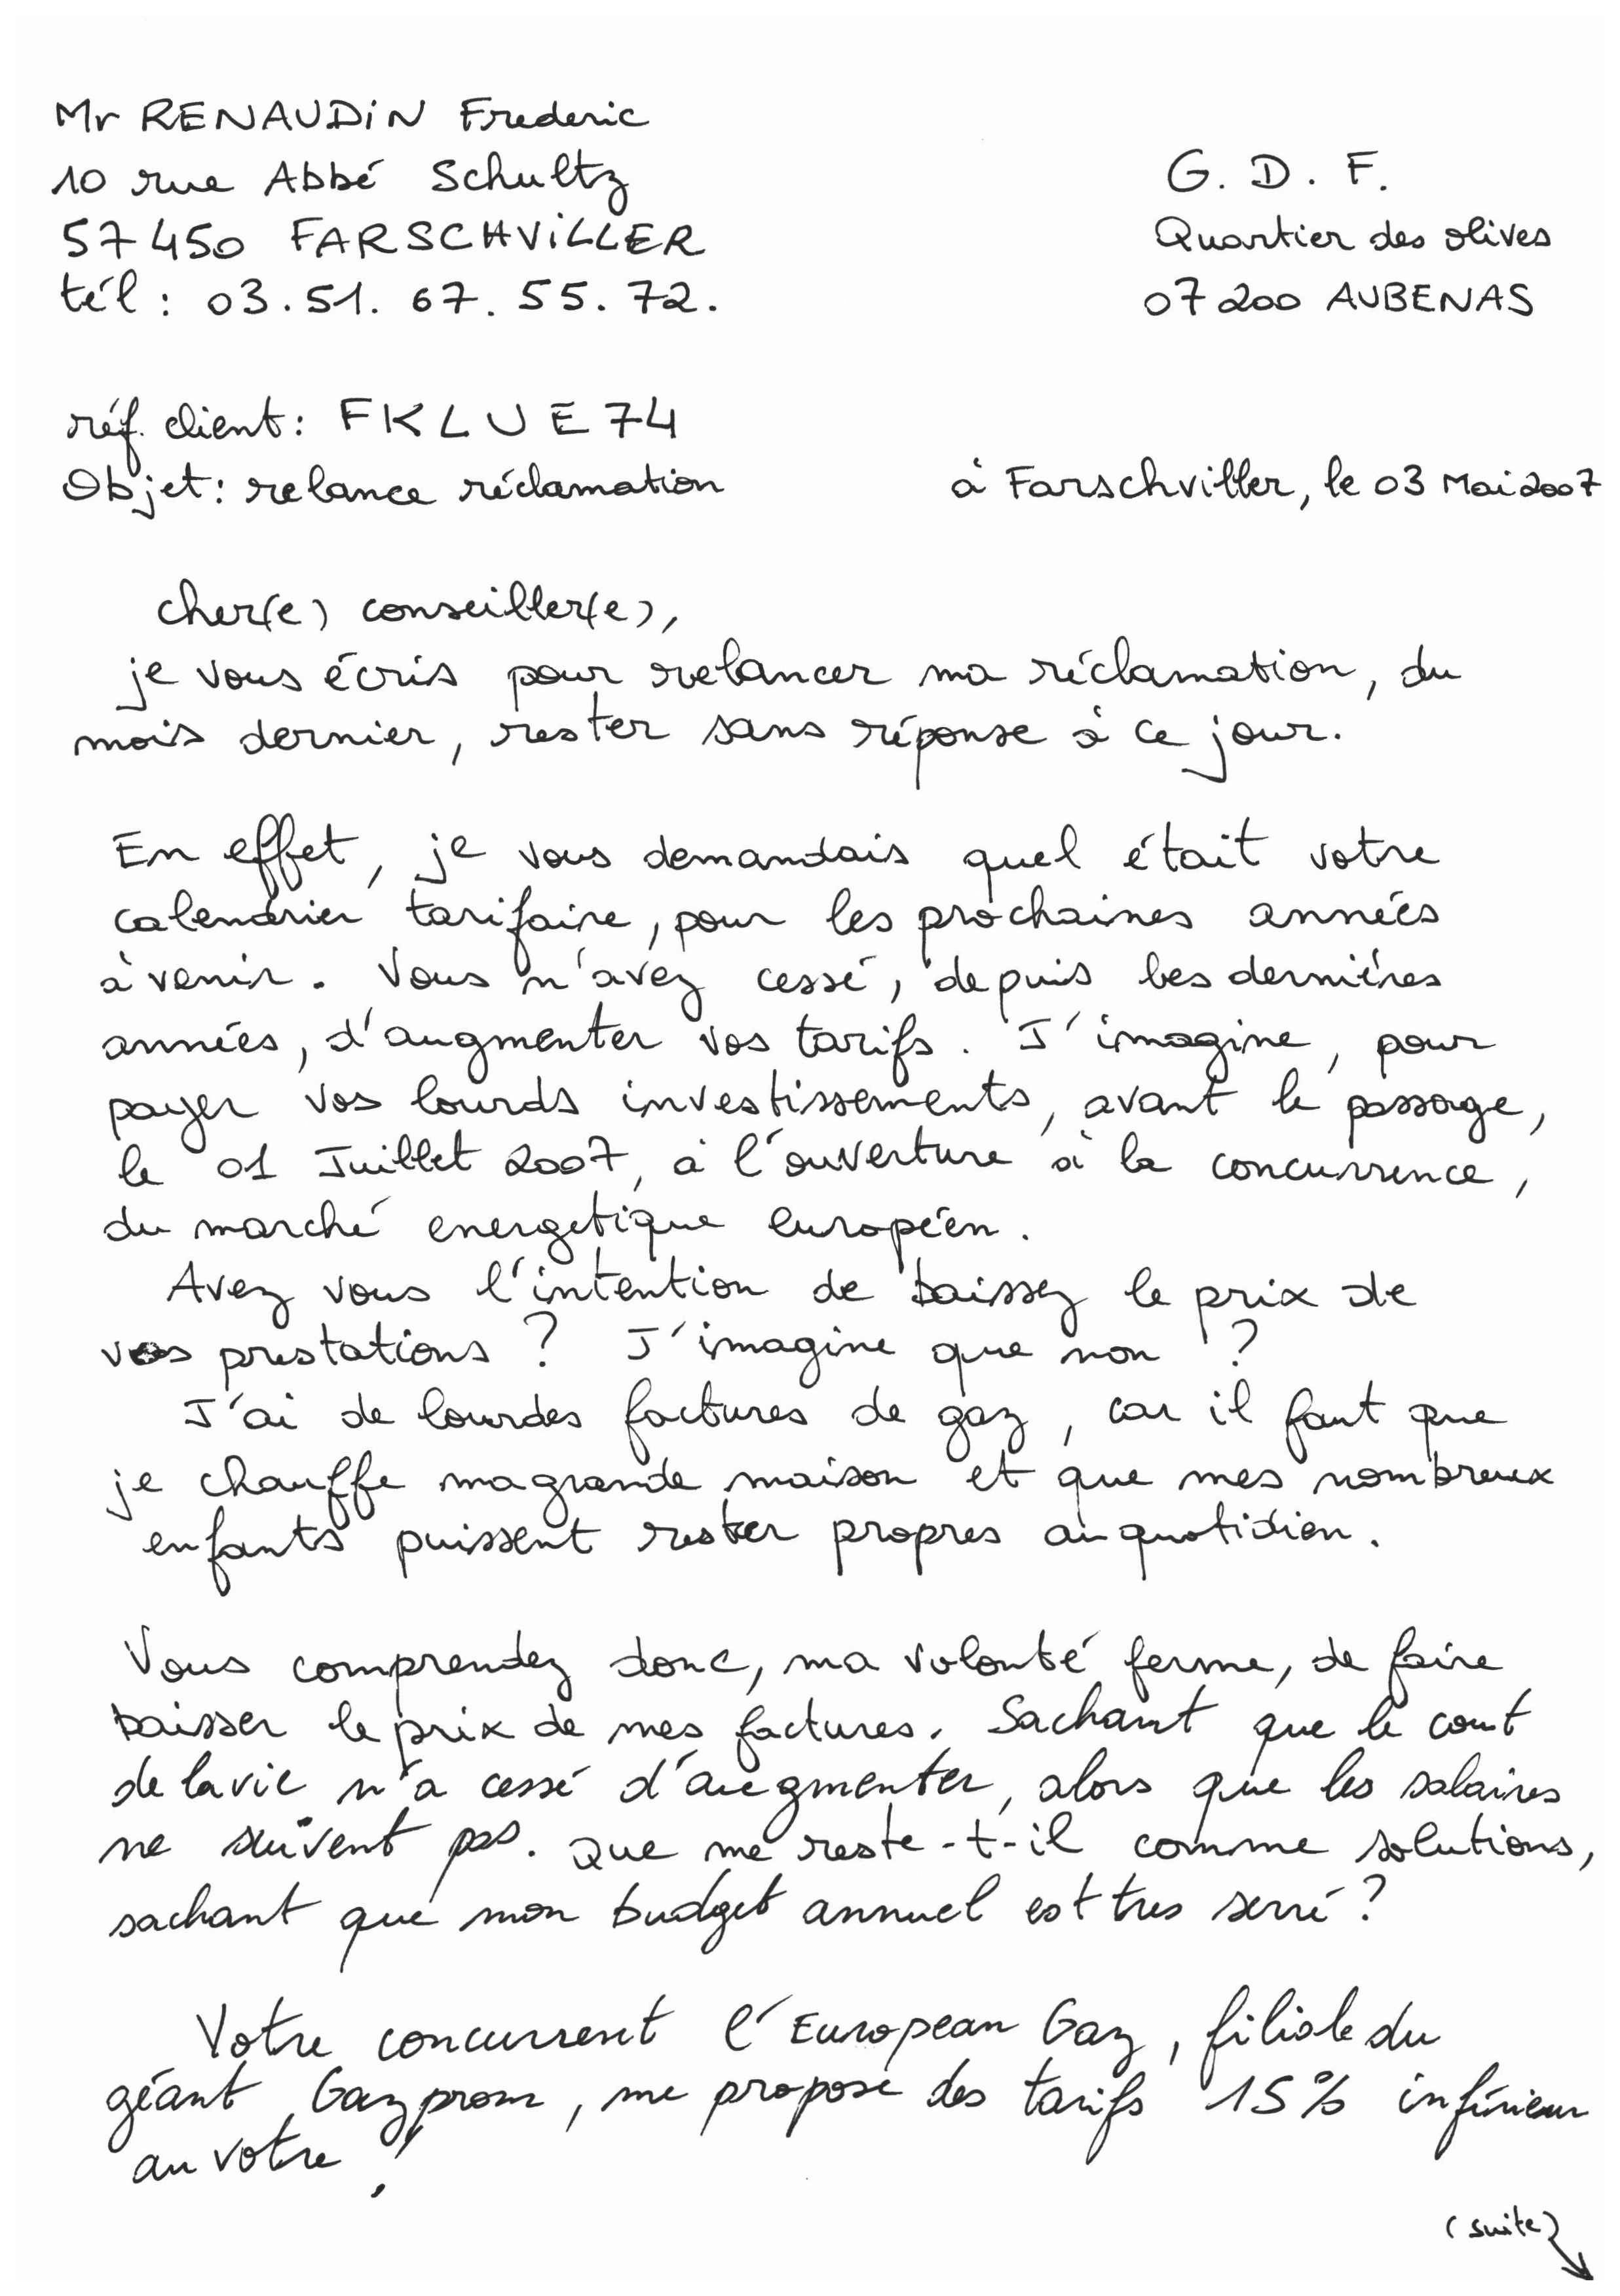 Mr RENAUDIN Frederic
10 rue Abbé Schultz
57450 FARSCHVILLER
tél : 03.51.67.55.72.
G. D. F.
Quartier des olives
07200 AUBENAS
réf. client : FKLUE74
Objet : relance réclamation
à Farschviller, le 03 Mai 2007
cher(e) conseiller(e),
je vous écris pour relancer ma réclamation, du
mois dernier, rester sans réponse à ce jour.
En effet, je vous demandais quel était votre
calendrier tarifaire, pour les prochaines années
à venir. Vous n'avez cessé, depuis les dernières
années, d'augmenter vos tarifs. J'imagine, pour
payer vos lourds investissements, avant le passage,
le 01 Juillet 2007, à l'ouverture à la concurrence,
du marché energetique européen.
Avez vous l'intention de baissez le prix de
vos prestations ? J'imagine que non ?
J'ai de lourdes factures de gaz, car il faut que
je chauffe ma grande maison et que mes nombreux
enfants puissent rester propres au quotidien.
Vous comprendez donc, ma volonté ferme, de faire
baisser le prix de mes factures. Sachant que le cout
de la vie n'a cessé d'augmenter, alors que les salaires
ne suivent pas. Que me reste-t-il comme solutions,
sachant que mon budget annuel est tres serré ?
Votre concurrent l'European Gaz, filiale du
géant Gazprom, me propose des tarifs 15% inférieur
au votre !
(suite)